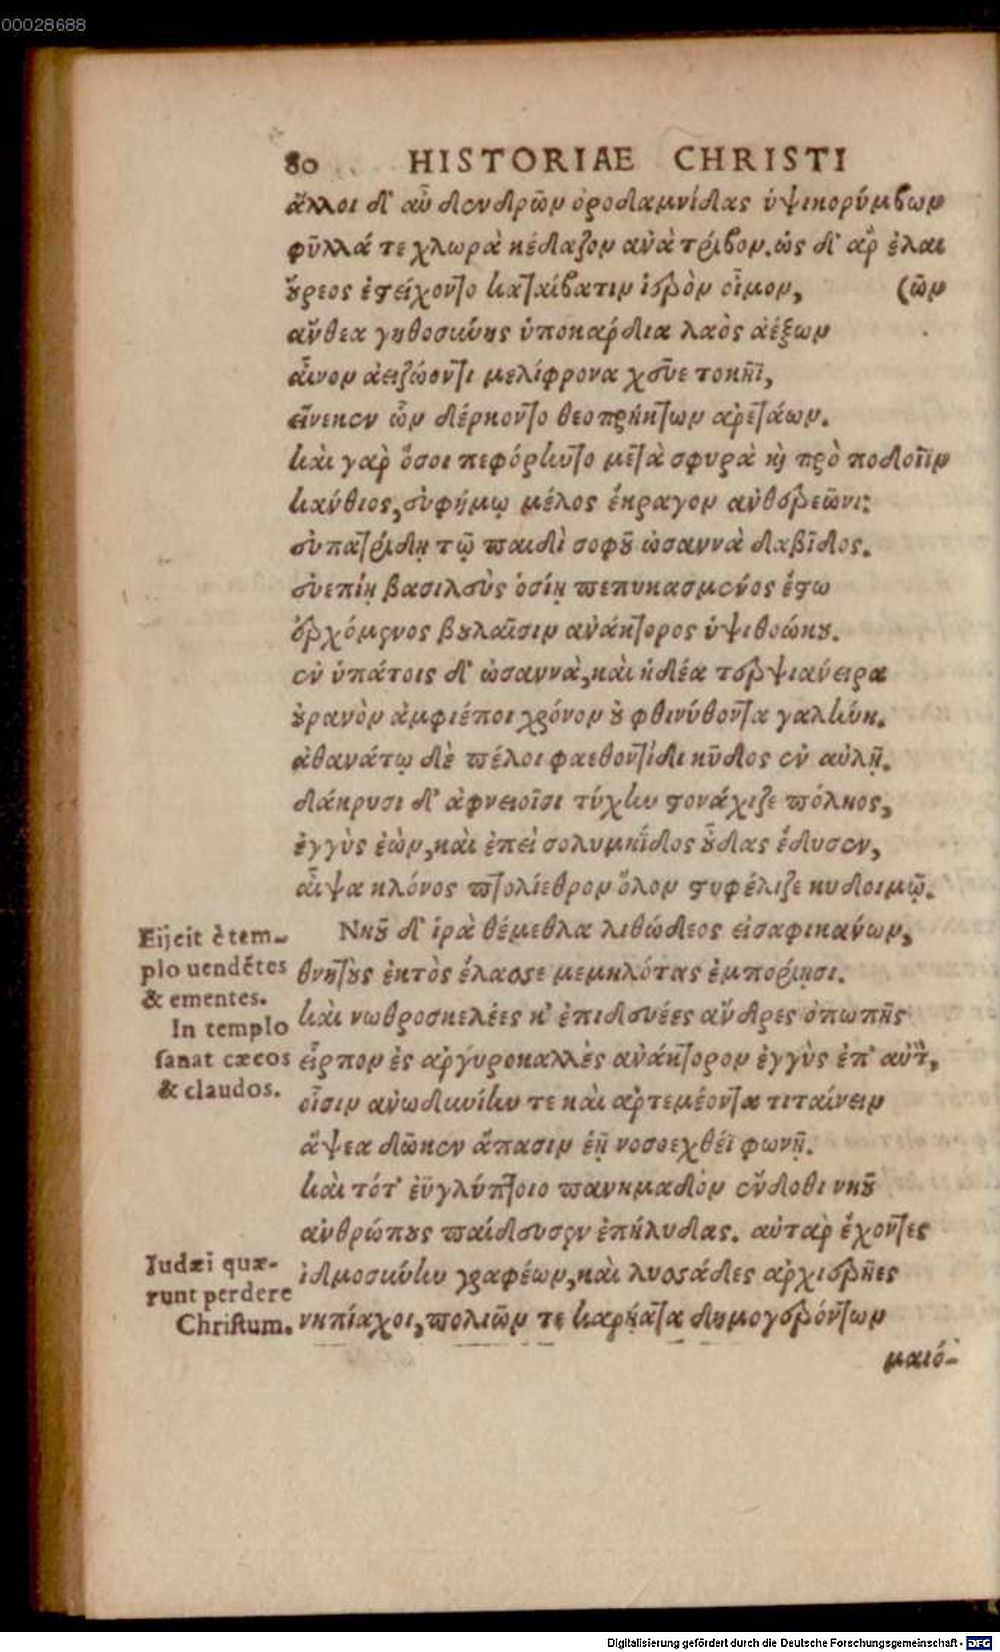 00028688
80 HISTORIAE CHRISTI
ἄλλοι δ' αὖ δένδρων ὀροδαμνίδας ὑψικορύμβων
φῦλλά τε χλωρὰ κέδαζον ἀνὰ τρίβον. ὡς δ' ἀρ ἐλαι
ούρεος ἐστείχοντο καταίβατιν ἱερὸν οἶμον, (ῶν
ἄνθεα γηθοσύνης ὑποκαρδια λαὸς ἀέξων
αἶνον ἀειζώοντι μελίφρονα χεῦε τοκῆϊ,
εἵνεκεν ὧν δέρκοντο θεοπρήκτων ἀρετάων.
καὶ γαρ ὅσοι πεφόρηντο μετὰ σφυρὰ καὶ πρὸ ποδοῖϊν
κάνθιος, εὐφήμῳ μέλος ἔκραγον ἀνθερεῶνι:
εὐπατρίδῃ τῷ παιδὶ σοφοῦ ὡσαννὰ δαβῖδος.
εὐεπίῃ βασιλεὺς ὁσίῃ πεπυκασμένος ἔστω
ἐρχόμενος βουλαῖσιν ἀνάκτορος ὑψιθοώκου.
ἐν ὑπάτοις δ' ὡσαννὰ, καὶ ἡδέα τερψιάνειρα
οὐρανὸν ἀμφιέποι χρόνον οὐ φθινύθοντα γαλήνη.
ἀθανάτῳ δὲ πέλοι φαεθοντίδι κῦδος ἐν αὐλῇ.
δάκρυσι δ' ἀφνειοῖσι τύχην στονάχιζε πόληος,
ἐγγὺς ἐὼν, καὶ ἐπεὶ σολυμηΐδος οὖδας ἔδυσεν,
αἶψα κλόνος πτολίεθρον ὅλον στυφέλιζε κυδοιμῷ.
Νηοῦ δ' ἱρὰ θέμεθλα λιθώδεος εἰσαφικανων,
Eijcit è tem-
plo uendẽtes
& ementes.
θνητοὺς ἐκτὸς ἔλασσε μεμηλότας ἐμπορίῃσι.
In templo
sanat cæcos
& claudos.
καὶ νωθροσκελέες κ' ἐπιδευέες ἄνδρες ὀπωπῆς
εἷρπον ἐς ἀργυροκαλλὲς ἀνάκτορον ἐγγὺς ἐπ'
οἷσιν ἀνωδυνίην τε καὶ ἀρτεμέοντα τιταίνειν
ἅψεα δῶκεν ἅπασιν ἑῇ νοσοεχθέϊ φωνῇ.
καὶ τότ' ἐϋγλύπτοιο πανημαδὸν ἔνδοθι νηοῦ
ἀνθρώπους παίδευσεν ἐπήλυδας. αὐταρ ἔχοντες
Iudæi quæ-
runt perdere
Christum.
ἰδμοσύνην γραφέων, καὶ λυσσάδες ἀρχιερῆες
νηπίαχοι, πολιῶν τε καρήατα δημογερόντων
μαιό-
Digitalisierung gefördert durch die Deutsche Forschungsgemeinschaft - DFG